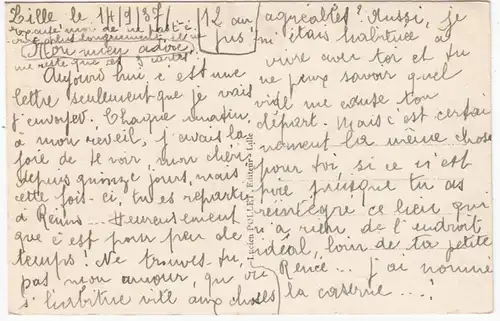 Lille le 14/9/37/
12 au
Mon mien adoré
me reste que ces 3 cartes
Aujourd'hui c'est une
lettre seulement que je vais
t'envoyer. Chaque matin
à mon réveil, j'avais la
joie de te voir, mon chéri
depuis quinze jours, mais
cette fois-ci, tu es reparti
à Reims... Heureusement
que c'est pour peu de
temps! Ne trouves-tu
pas mon amour, qu'
s'habitue vite aux choses
agréables? Aussi, je
m'étais habituée à
vivre avec toi et tu
ne peux savoir quel
vide me cause ton
départ. Mais c'est certai
nement la même chose
pour toi, si ce n'est
pire puisque tu as
réintégré ce lieu qui
n'a rien de l'endroit
idéal, loin de ta petite
Renée... j'ai nommé
la caserne...!
Lucien POLLET, Editeur - Lille